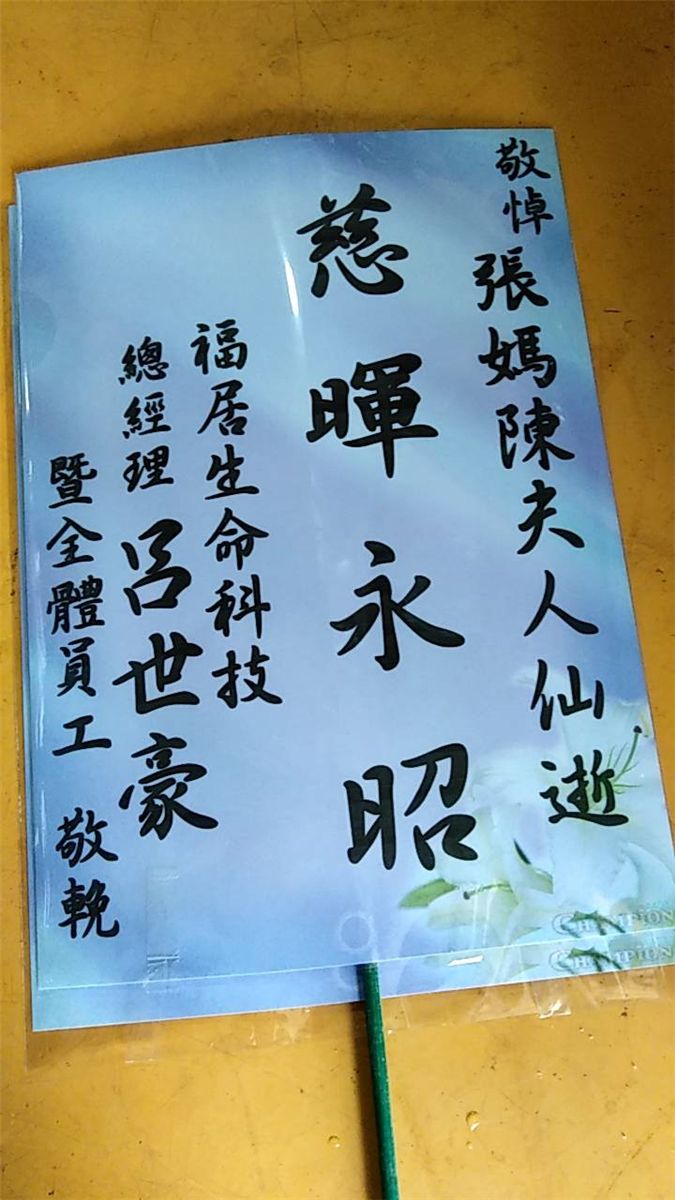 敬悼 張媽陳夫人仙逝
慈暉永昭
福居生命科技
總經理 呂世豪
暨全體員工 敬輓
CHAMPION
CHAMPION